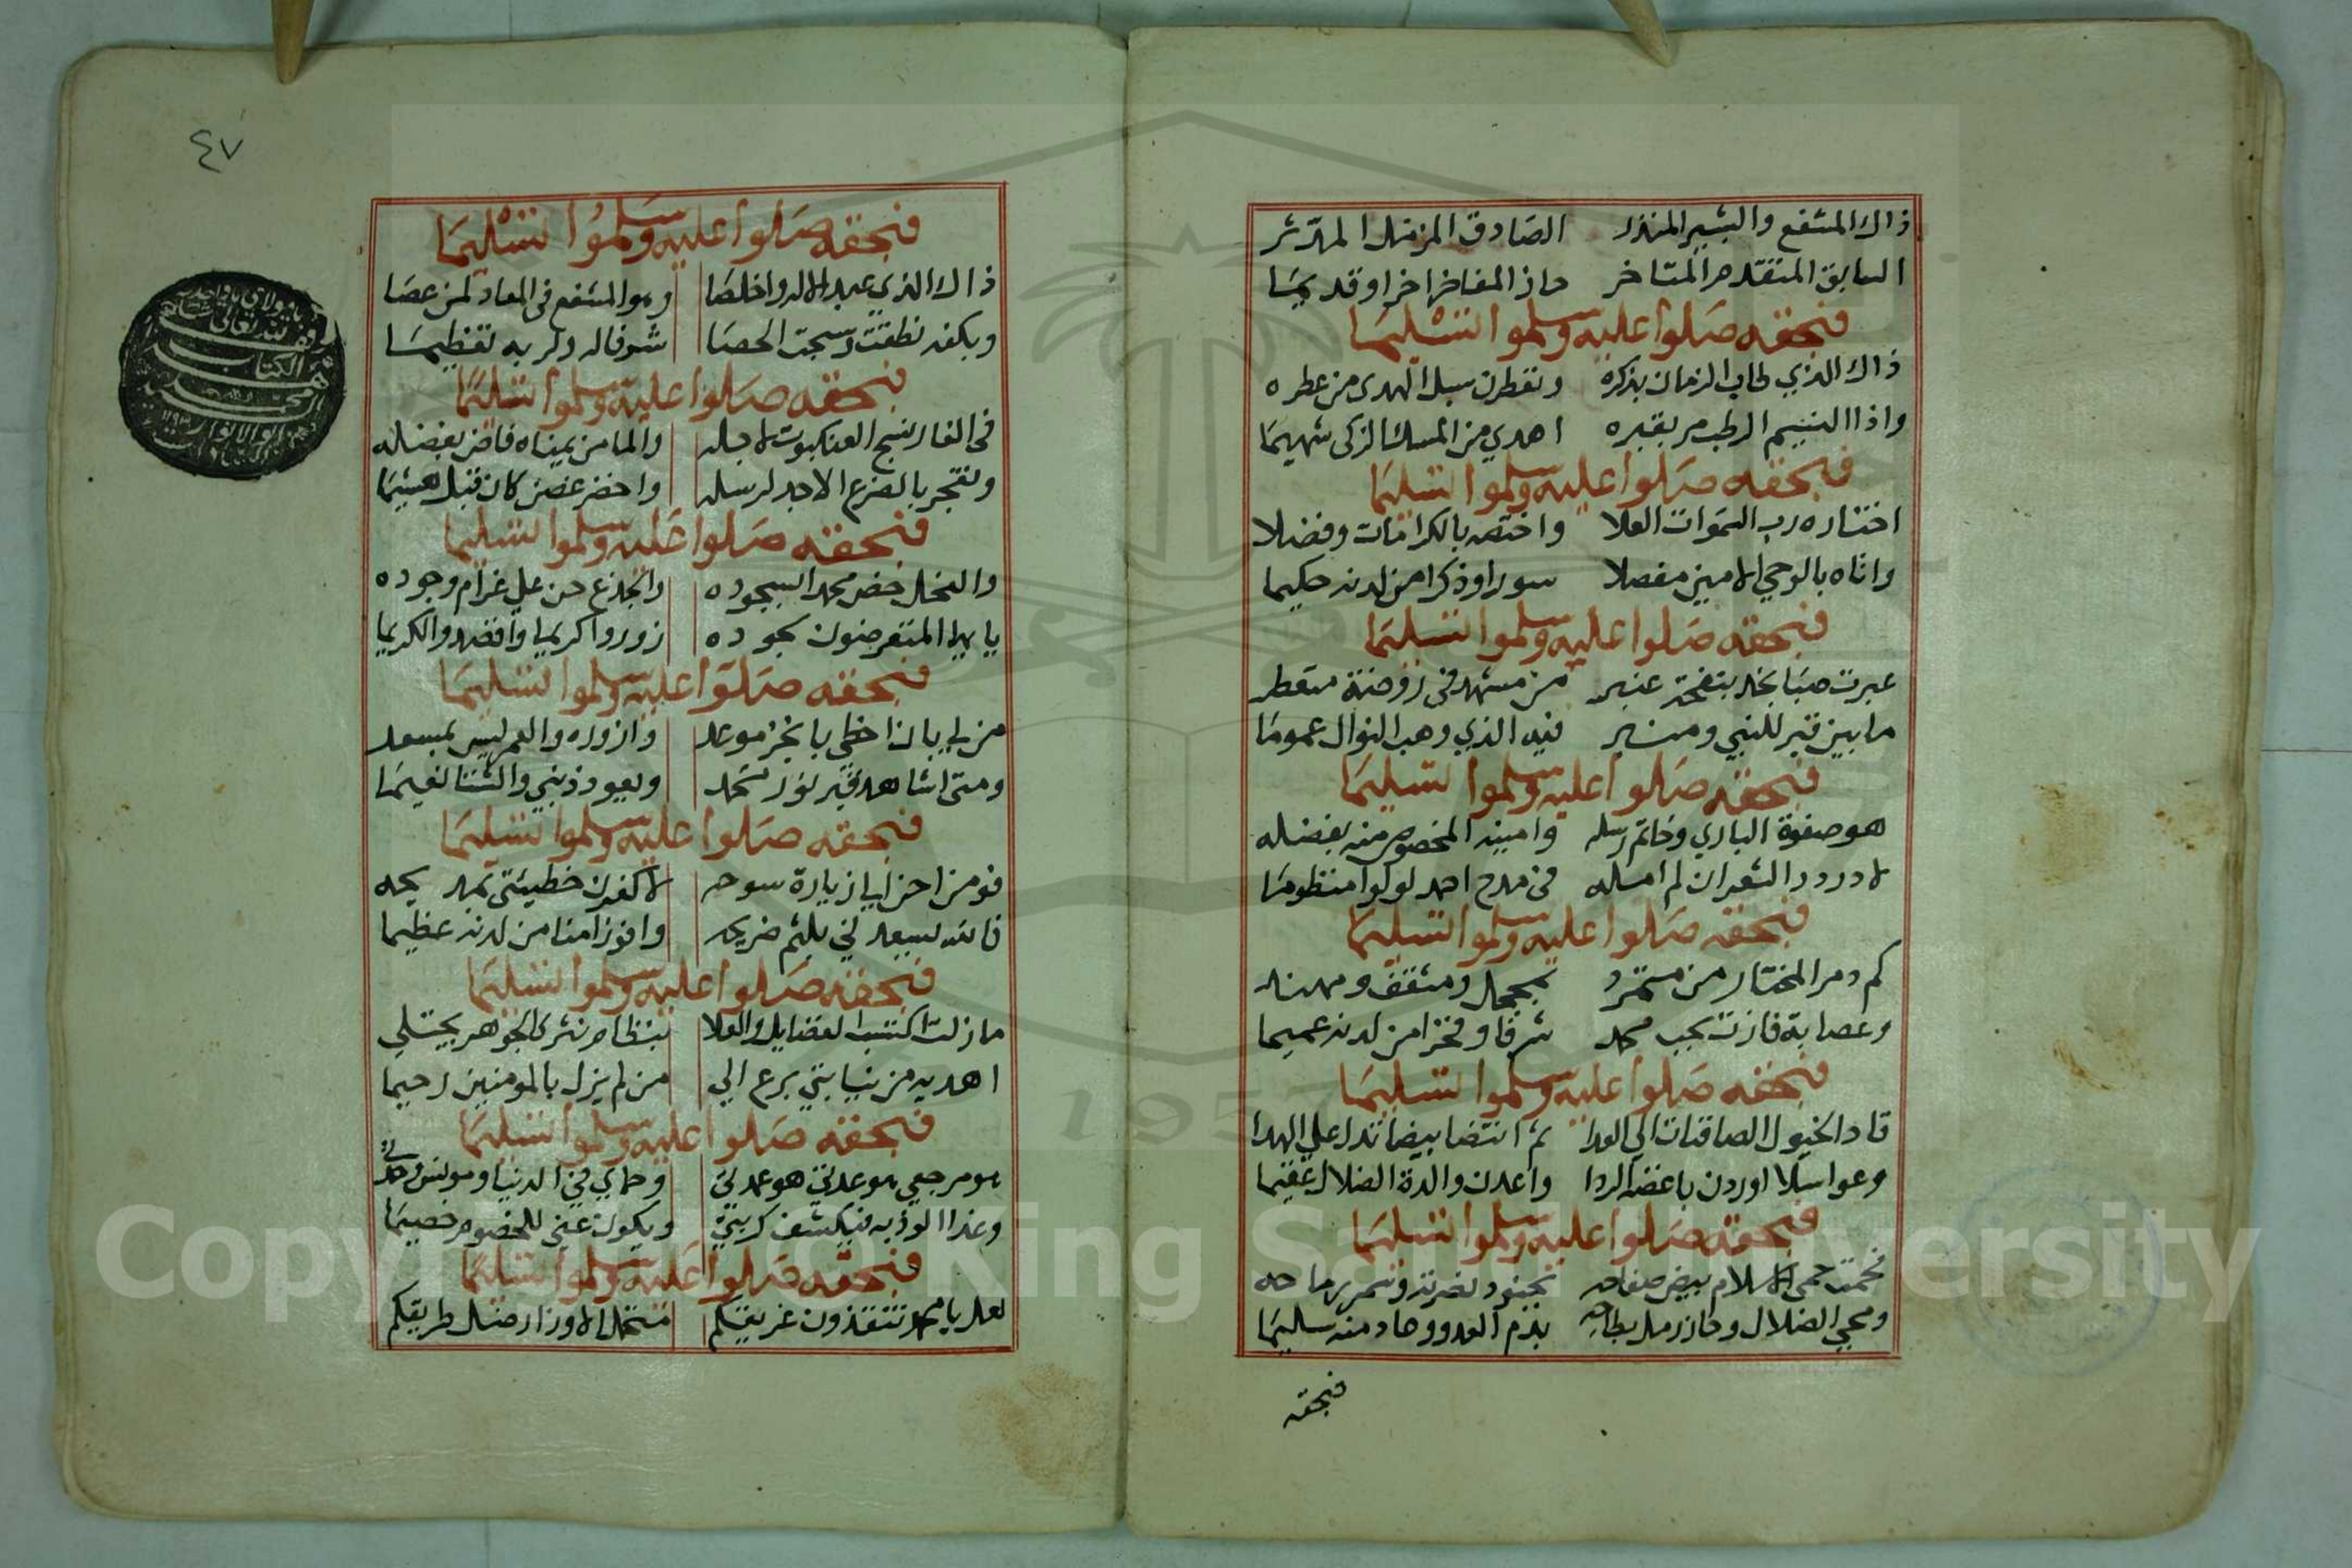 ذاك المشفع والبشير المنذر الصادق المزمل المدثر
السابق المتقدم المتاخر حاز المفاخر اخرا وقديما
فبحقه صلوا عليه وسلموا تسليما
ذاك الذي طاب الزمان بذكره وتعطرت سبل الهدى من عطره
واذا النسيم الرطب مر بقبره اهدي من المسك الزكى شميما
فبحقه صلوا عليه وسلموا تسليما
اختاره رب السموات العلا واختصه بالكرامات وفضلا
واتاه بالوحي الامين مفصلا سورا وذكرا من لدنه حكيما
فبحقه صلوا عليه وسلموا تسليما
عبرت صبا نجد بنفحة عنبر من مشهد في روضة متعطر
ما بين قبر للنبي ومنبر فيه الذي وهب النوال عموما
فبحقه صلوا عليه وسلموا تسليما
هو صفوة الباري وخاتم رسله وامينه المخصوص منه بفضله
لا در در الشعر ان لم امله في مدح احمد لولوا منظوما
فبحقه صلوا عليه وسلموا تسليما
كم دمر المختار من متمرد بمجمل ومثقف ومهند
وعصابة فازت بحب محمد شرفا وفخرا من لدنه عميما
فبحقه صلوا عليه وسلموا تسليما
قاد الخيول الصافنات الي العدا ثم انتضا بيضا تدل علي الهدا
وعواسلا اوردن باغضه الردا واعدن والدة الضلال عقيما
فبحقه صلوا عليه وسلموا تسليما
فحمت حمى الاسلام بيض صفاحه بجنود نصرته وسمر رماحه
ومحي الضلال وحاز رمل بطاحه بدم العدو وعاد منه سليما
فبحقه
٤٧
فبحقه صلوا عليه وسلموا تسليما
ذاك الذي عبد الاله واخلصا وهو المشفع في المعاد لمن عصا
وبكفه نطقت وسبحت الحصا شرفا له ولربه تعظيما
فبحقه صلوا عليه وسلموا تسليما
في الغار نسج العنكبوت لاجله والما من يمناه فاض بفضله
وتفجر بالضرع الاجد لرسله واخضر غصن كان قبل هشيما
فبحقه صلوا عليه وسلموا تسليما
والنخل خضر محمد السجوده والجذع حن علي غرام وجوده
يايها المتعرضون بجوده زوروا كريما وافضدوا الكريما
فبحقه صلوا عليه وسلموا تسليما
من لي بان احظي بانجز موعد وازوره والعمر ليس بمسعد
ومتى اشاهد قبر نور محمد ويعود ذنبي والشتا نعيما
فبحقه صلوا عليه وسلموا تسليما
فومن احزابي ازيارة سوحه لاكفرن خطيئتي بمديحه
فالله يسعدني بلثم ضريحه وافوز امنا من لدنه عظيما
فبحقه صلوا عليه وسلموا تسليما
مازلت اكتسب الفضايل والعلا بنظام نثر كالجوهر يجتلي
اهديه من نيابتي برع الي من لم يزل بالمومنين رحيما
فبحقه صلوا عليه وسلموا تسليما
هو مرجعي هو عدتي هو عمدتي وحماي في الدنيا ومونس وحدتي
وغدا الوذ به فيكشف كربتي ويكون عني للخصوم خصيما
فبحقه صلوا عليه وسلموا تسليما
لعل يا محمد تنقذون غريقكم متحمل الاوزار ضل طريقكم
Copyright © King Saud University
1957